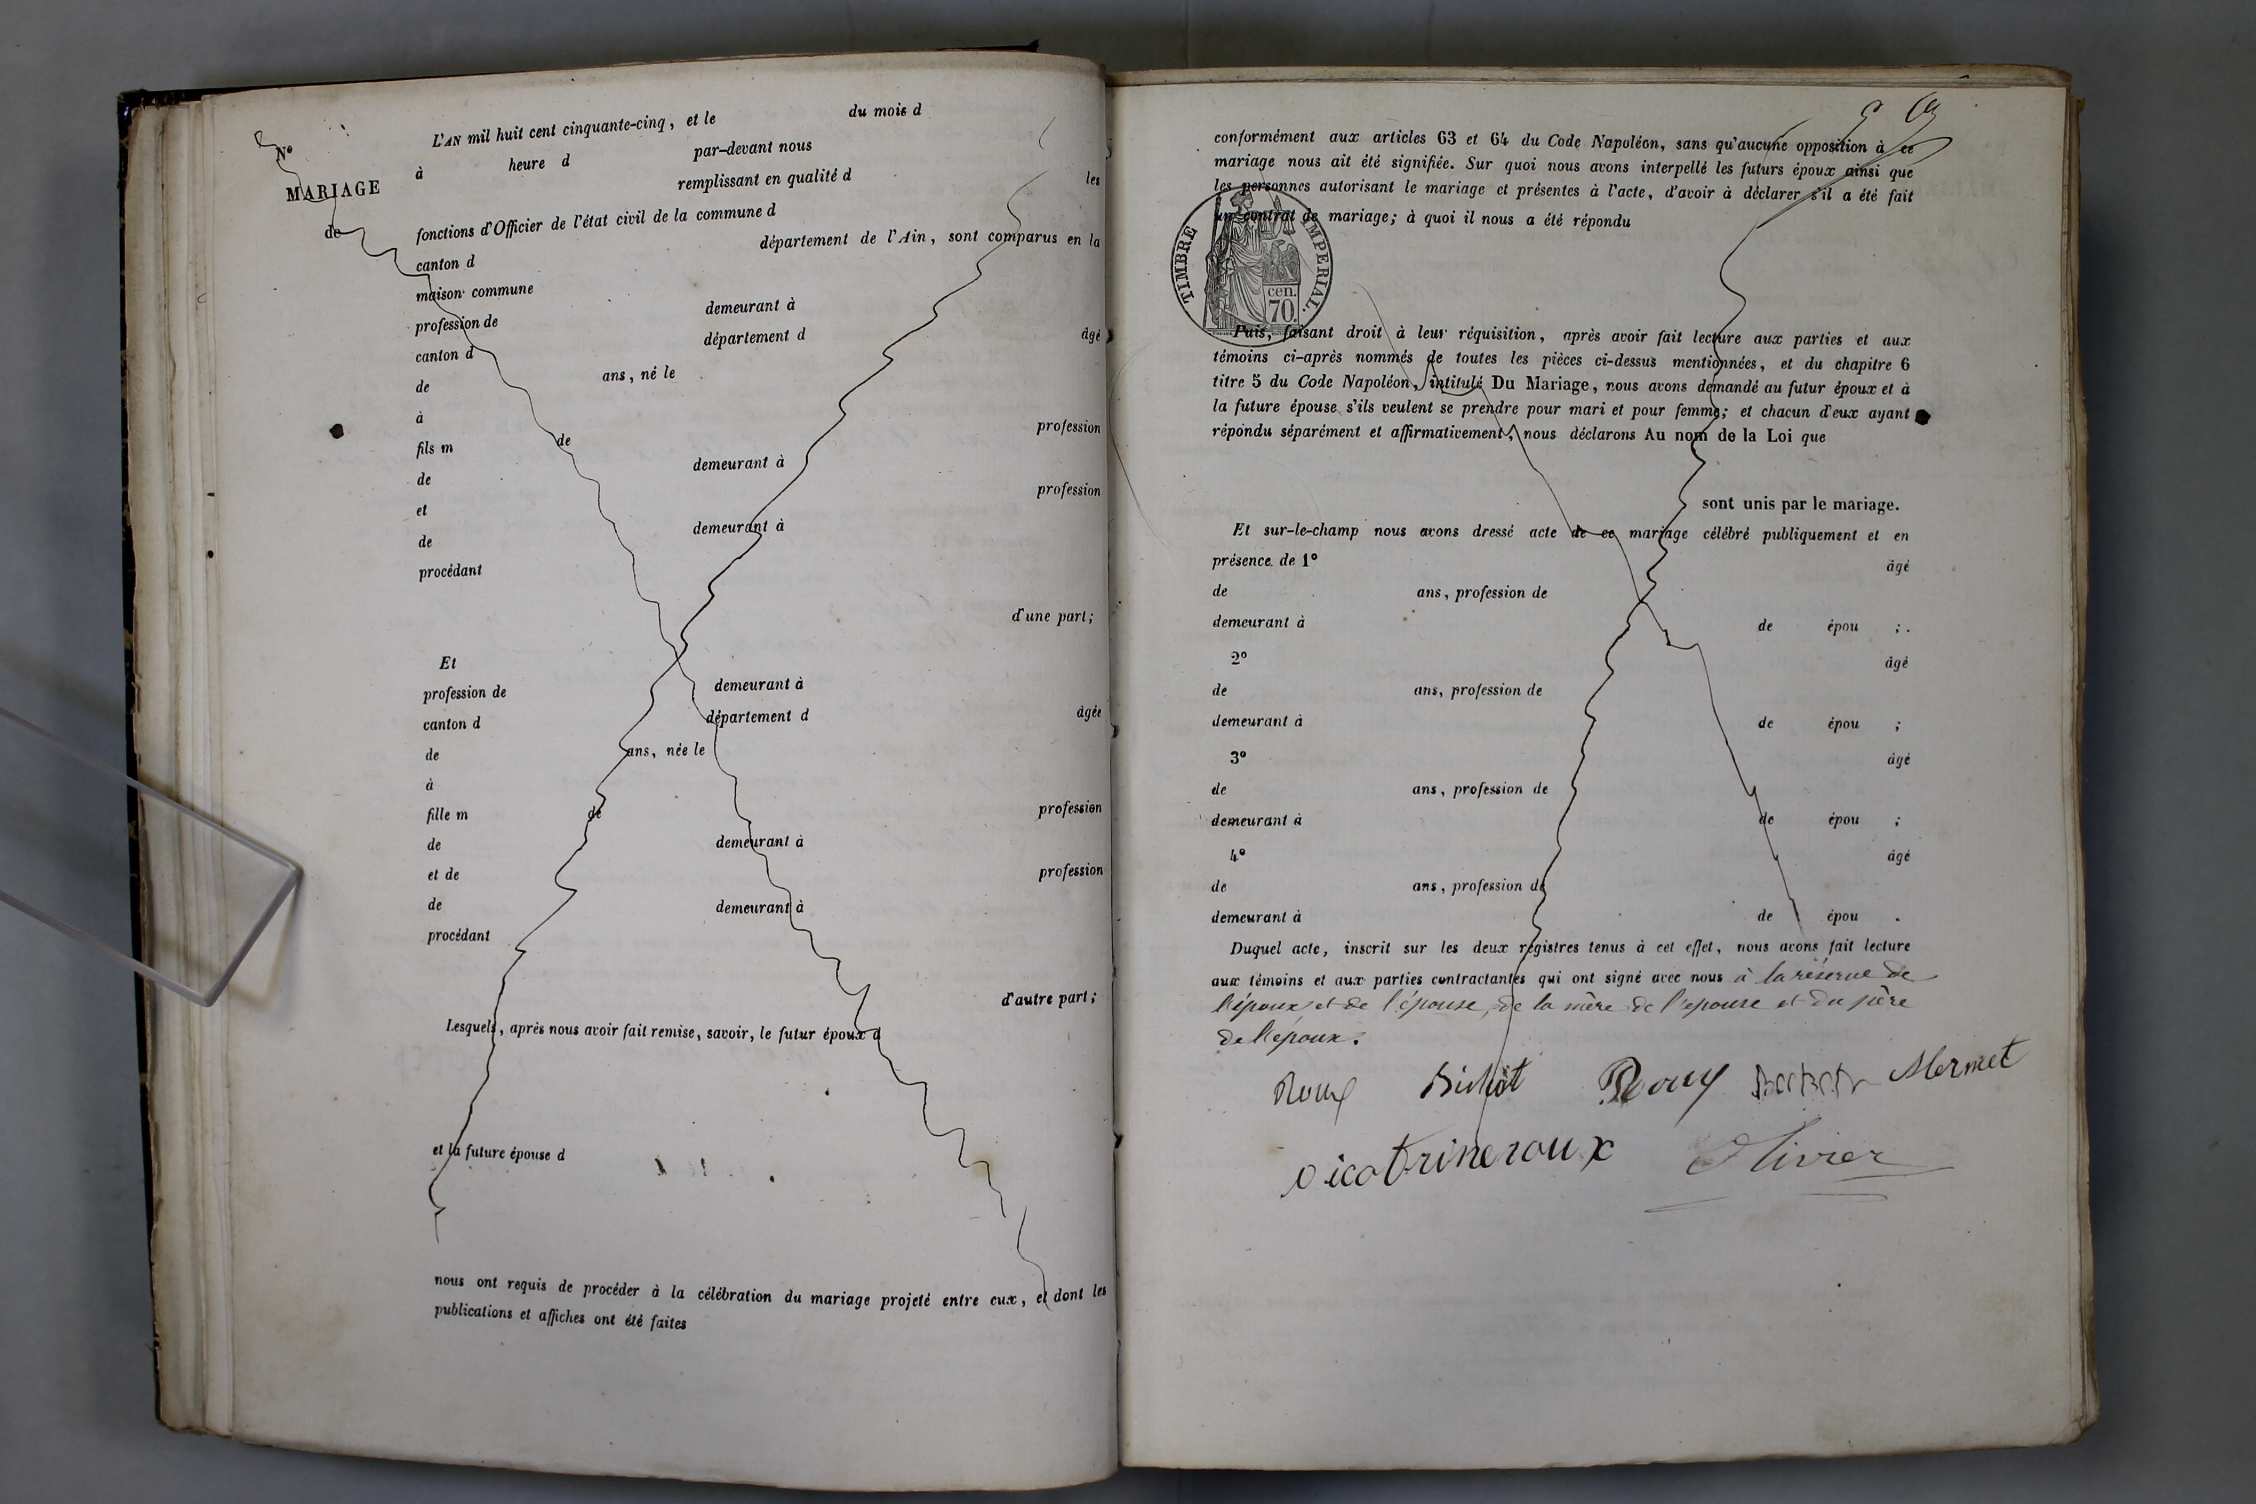 Nº
MARIAGE
de
L'AN mil huit cent cinquante-cinq, et le du mois d
à heure d par-devant nous
remplissant en qualité d les
fonctions d'Officier de l'état civil de la commune d
canton d département de l'Ain, sont comparus en la
maison commune
profession de demeurant à
canton d département d âgé
de ans, né le
à
fils m de profession
de demeurant à
et profession
de demeurant à
procédant
d'une part;
Et
profession de demeurant à
canton d département d âgée
de ans, née le
à
fille m de profession
de demeurant à
et de profession
de demeurant à
procédant
d'autre part;
Lesquels, après nous avoir fait remise, savoir, le futur époux d
et la future épouse d
nous ont requis de procéder à la célébration du mariage projeté entre eux, et dont les
publications et affiches ont été faites
conformément aux articles 63 et 64 du Code Napoléon, sans qu'aucune opposition à ce
mariage nous ait été signifiée. Sur quoi nous avons interpellé les futurs époux ainsi que
les personnes autorisant le mariage et présentes à l'acte, d'avoir à déclarer s'il a été fait
un contrat de mariage; à quoi il nous a été répondu
TIMBRE IMPERIAL.
cen.
70.
Puis, faisant droit à leur réquisition, après avoir fait lecture aux parties et aux
témoins ci-après nommés de toutes les pièces ci-dessus mentionnées, et du chapitre 6
titre 5 du Code Napoléon, intitulé Du Mariage, nous avons demandé au futur époux et à
la future épouse s'ils veulent se prendre pour mari et pour femme; et chacun d'eux ayant
répondu séparément et affirmativement, nous déclarons Au nom de la Loi que
sont unis par le mariage.
Et sur-le-champ nous avons dressé acte de ce mariage célébré publiquement et en
présence de 1º âgé
de ans, profession de
demeurant à de épou ;
2º âgé
de ans, profession de
demeurant à de épou ;
3º âgé
de ans, profession de
demeurant à de épou ;
4º âgé
de ans, profession de
demeurant à de épou .
Duquel acte, inscrit sur les deux registres tenus à cet effet, nous avons fait lecture
aux témoins et aux parties contractantes qui ont signé avec nous à la réserve de
l'époux et de l'épouse, de la mère de l'epouse et du père
de l'époux.
Roux Bichat Rouy Mermet
Olivier